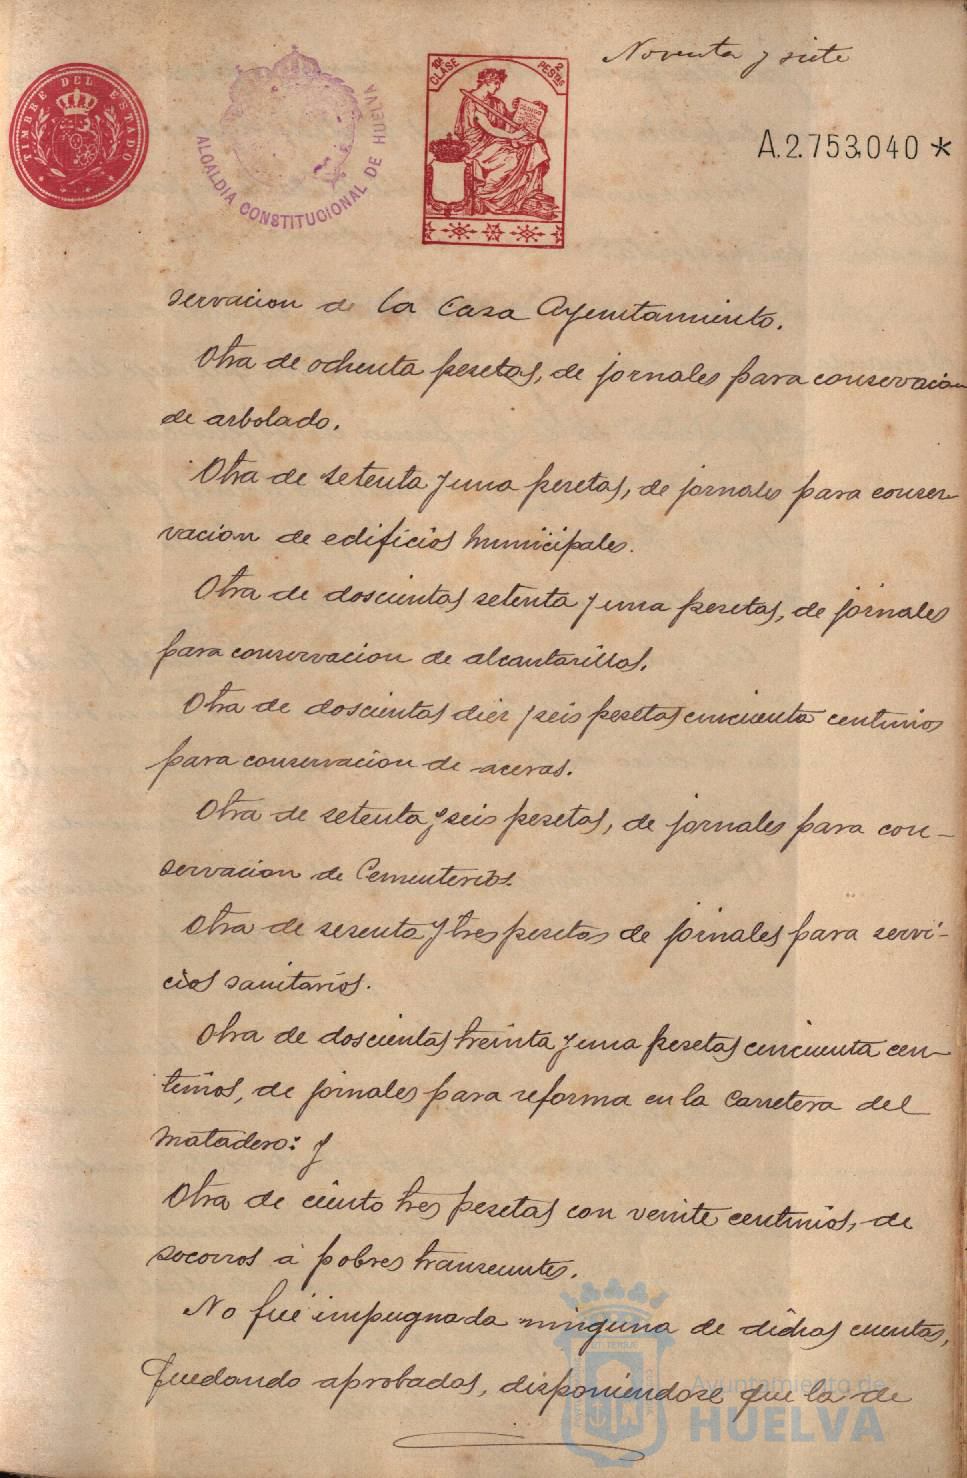 Noventa y siete
TIMBRE DEL ESTADO
ALCALDIA CONSTITUCIONAL DE HUELVA
10ª CLASE
2 PESTAS
A.2.753,040 *
servacion de la Casa Ayuntamiento.
Otra de ochenta pesetas, de jornales para conservacion
de arbolado.
Otra de setenta y una pesetas, de jornales para conser-
vacion de edificios municipales.
Otra de doscientas setenta y una pesetas, de jornales
para conservacion de alcantarillas.
Otra de doscientas diez y seis pesetas cincuenta centimos
para conservacion de aceras.
Otra de setenta y seis pesetas, de jornales para con-
servacion de Cementerios.
Otra de sesenta y tres pesetas de jornales para servi-
cios sanitarios.
Otra de doscientas treinta y una pesetas cincuenta cen-
timos, de jornales para reforma en la Carretera del
Matadero: y
Otra de ciento tres pesetas con veinte centimos, de
socorros á pobres transeuntes.
No fué impugnada ninguna de dichas cuentas,
quedando aprobadas, disponiendose que la de
Ayuntamiento de
HUELVA